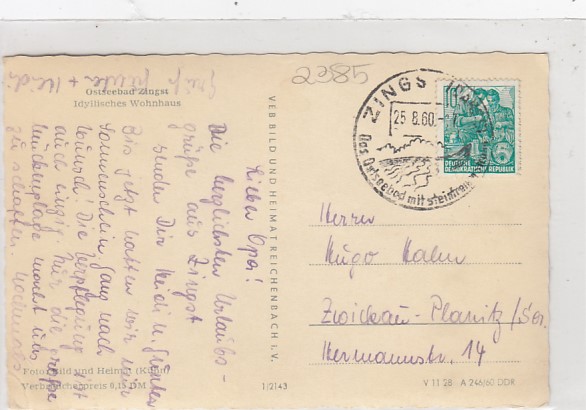 2285
Ostseebad Zingst
Idyllisches Wohnhaus
Lieber Opa!
Die herzlichsten Urlaubs-
grüße aus Zingst
senden Dir Heidi u. Günter
Bis jetzt hatten wir nur
Sonnenschein, ganz nach
Wunsch! Die Verpflegung ist
auch zugig. Nur die große
Mückenplage macht uns
zu schaffen. Nochmals
Gruß Günter + Heidi
Foto: Bild und Heimat
Verbraucherpreis 0,15 DM
VEB BILD UND HEIMAT REICHENBACH I. V.
1/2143
ZINGST
25.8.60.
Das Ostseebad mit steinfreiem
10
5
DEUTSCHE
DEMOKRATISCHE REPUBLIK
Herrn
Hugo Hahn
Zwickau-Planitz/Sa.
Hermannstr. 14
V 11 28 A 246/60 DDR